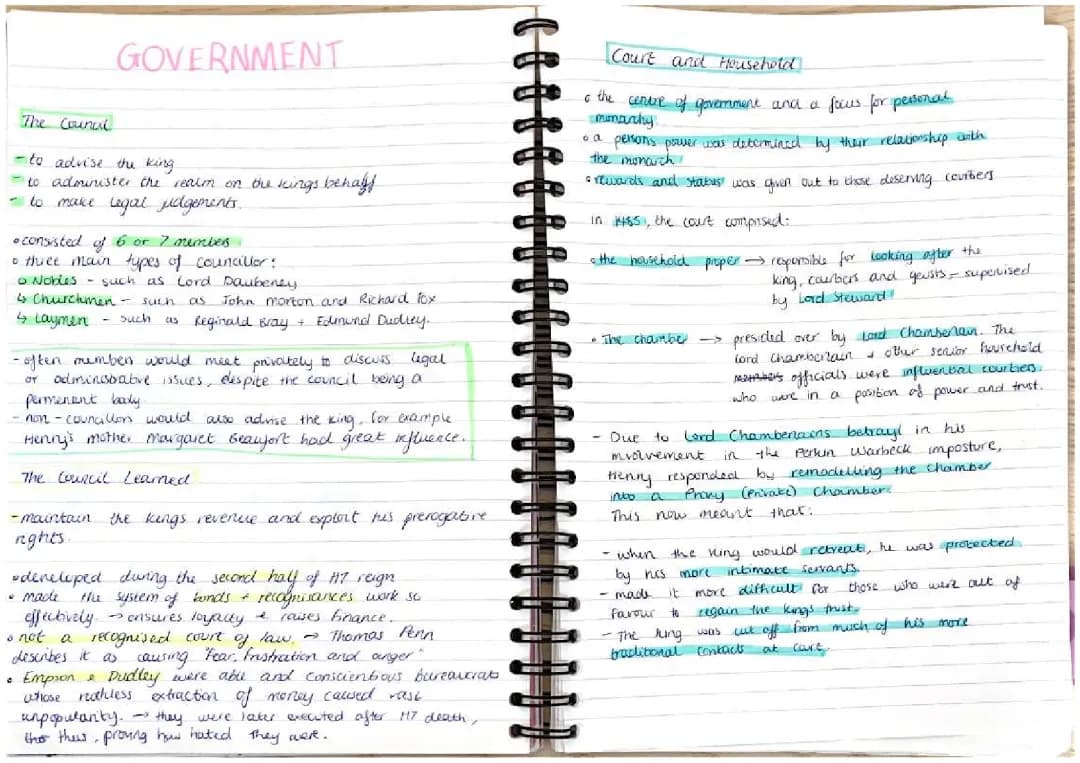 GOVERNMENT
The Council
- to advise the king
- to administer the realm on the kings behalf
- to make legal judgements.
• consisted of 6 or 7 members
• three main types of councillor:
↳ Nobles - such as Lord Daubeney
↳ Churchmen - such as John Morton and Richard Fox
↳ Laymen - such as Reginald Bray + Edmund Dudley.
- often members would meet privately to discuss legal
or administrative issues, despite the council being a
permenant body.
- non-councillors would also advise the king, for example
Henry's mother Margaret Beaufort had great influence.
The Council Learned
- maintain the kings revenue and exploit his prerogative
rights.
• developed during the second half of H7 reign
• made the system of bonds + recognisances work so
effectively. → ensures loyalty + raises finance.
• not a recognised court of law. → Thomas Penn
describes it as causing "fear, frustration and anger"
• Empson & Dudley were able and conscientious bureaucrats
whose ruthless extraction of money caused vast
unpopularity. → they were later executed after H7 death,
thus, proving how hated they were.
Court and Household
• the centre of government and a focus for personal
monarchy.
• a persons power was determined by their relationship with
the monarch
• rewards and status was given out to those deserving courtiers
in 1485, the court comprised:
• the household proper → responsible for looking after the
king, courtiers and geusts - supervised
by Lord Steward
• The chamber → presided over by Lord Chamberlain. The
lord chamberlain + other senior household
members officials were influential courtiers
who were in a position of power and trust.
- Due to Lord Chamberlains betrayl in his
involvement in the Perkin Warbeck imposture,
Henry responded by remodelling the chamber
into a Privy (private) Chamber.
This now meant that:
- when the king would retreat, he was protected
by his more intimate servants.
- made it more difficult for those who were out of
favour to regain the kings trust.
- The king was cut off from much of his more
traditional contacts at court.